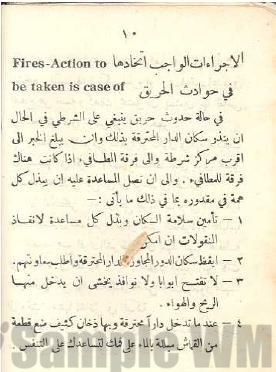 ١٠
الاجراءات الواجب اتخاذها Fires-Action to
في حوادث الحريق be taken is case of
في حالة حدوث حريق ينبغي على الشرطي في الحال
ان ينذر سكان الدار المحترقة بذلك وان يبلغ الخبر الى
اقرب مركز شرطة والى فرقة المطافيء اذا كانت هناك
فرقة للمطافيء . والى ان تصل المساعدة عليه ان يبذل كل
همة في مقدوره بما في ذلك ما يأتى : —
١ — تأمين سلامة السكان وبذل كل مساعدة لانقاذ
المنقولات ان امكن
٢ — ايقظ سكان الدور المجاورة للدار المحترقة واطلب معاونتهم .
٣ — لا تفتح ابوابا ولا نوافذ يخشى ان يدخل منها
الريح والهواء .
٤ — عند ما تدخل داراً محترقة وبها دخان كثيف ضع قطعة
من القماش مبللة بالماء على فمك لتساعدك على التنفس .
Sample